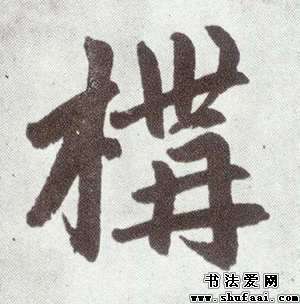 構
书法爱网
www.shufaai.com